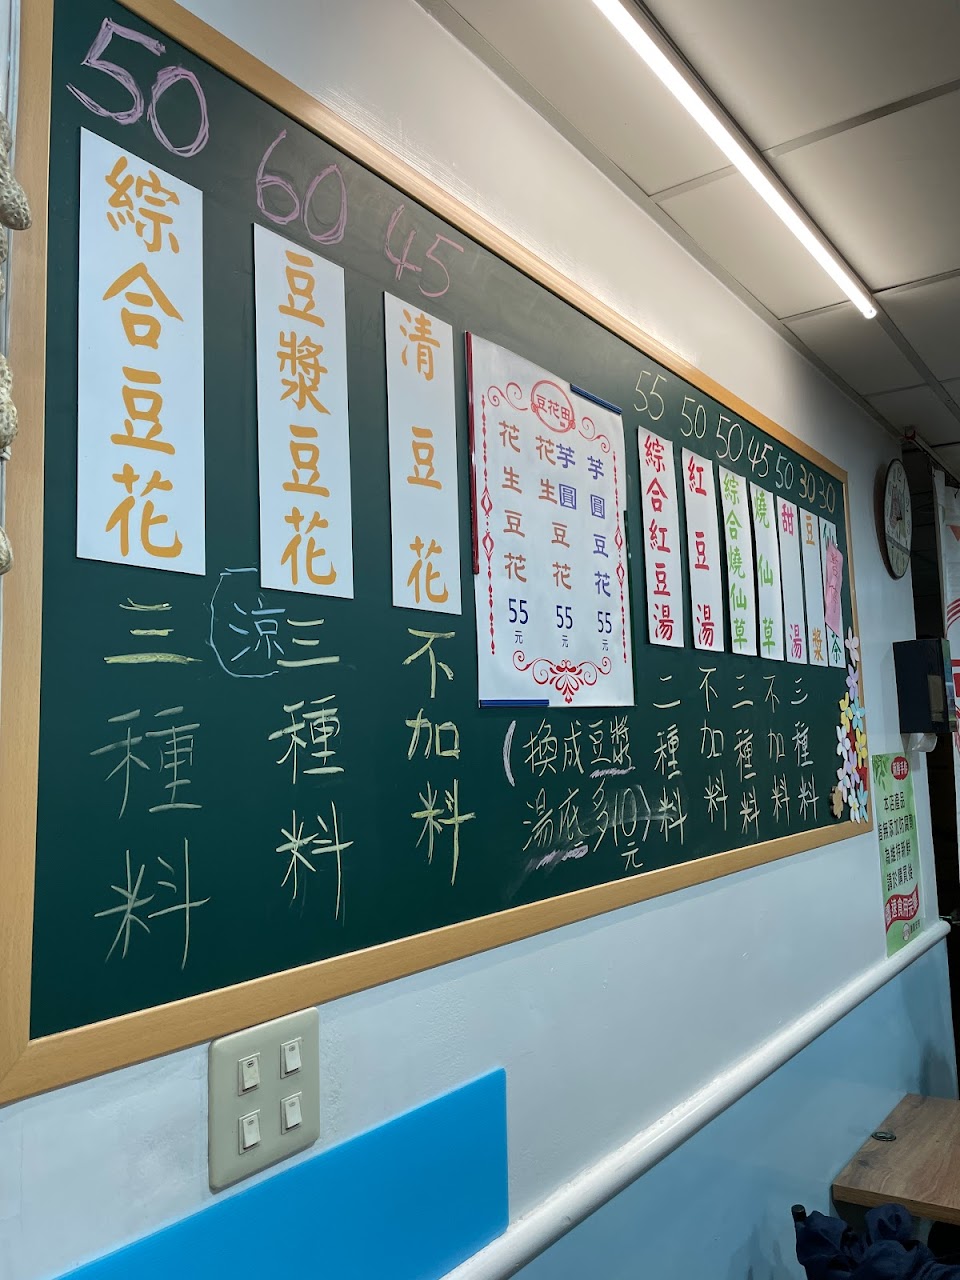 50
綜合豆花
三種料
60
豆漿豆花
涼
三種料
45
清豆花
不加料
豆花田
花生豆花
55元
芋圓
花生豆花
55元
芋圓豆花
55元
(換成豆漿
湯底多10)
元
55
綜合紅豆湯
二種料
50
紅豆湯
不加料
50
綜合燒仙草
三種料
45
燒仙草
不加料
50
甜湯
三種料
30
豆漿
30
茶
本店產品
皆無添加防腐劑
為維持新鮮
請於購買後